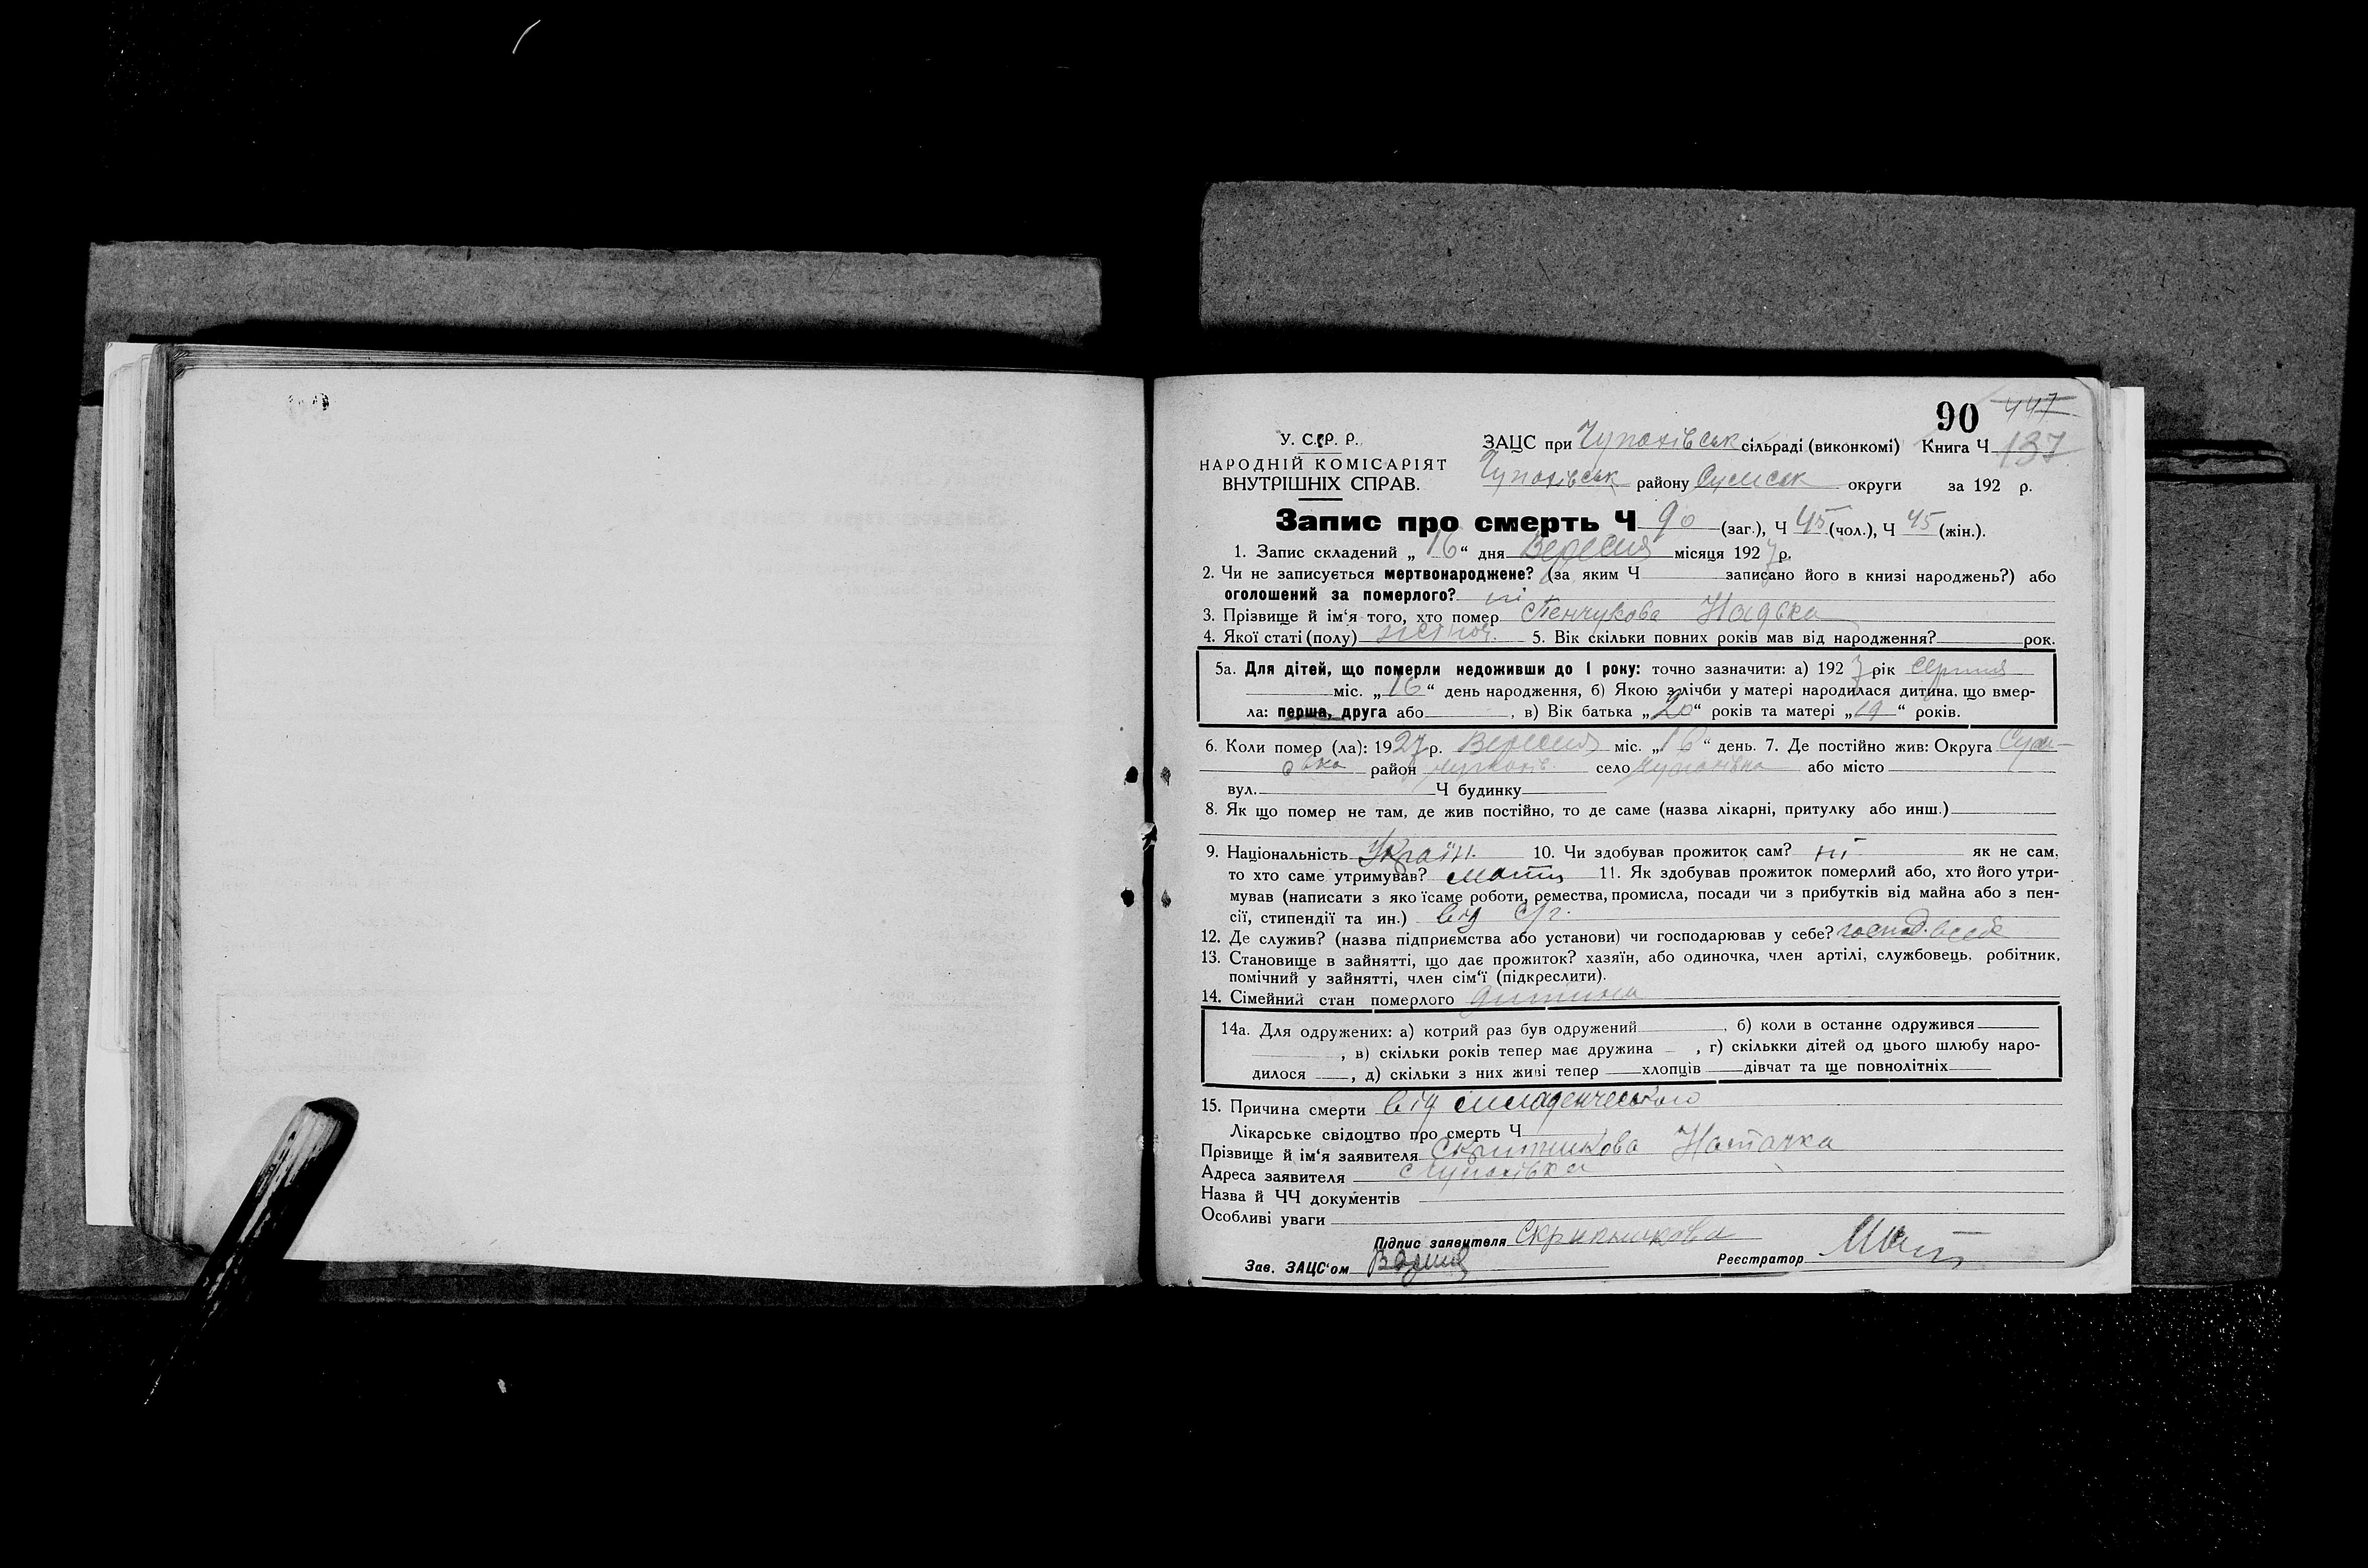 90 447
У. С. Р. Р.
ЗАЦС при Чупахівськ сільраді (виконкомі) Книга Ч 137
НАРОДНІЙ КОМІСАРІЯТ
ВНУТРІШНІХ СПРАВ.
Чупахівськ району Сумськ округи за 192 р.
Запис про смерть Ч 90 (заг.), Ч 45 (чол.), Ч 45 (жін.).
1. Запис складений „16“ дня Вересня місяця 1927 р.
2. Чи не записується мертвонароджене? (за яким Ч записано його в книзі народжень?) або
оголошений за померлого? ні
3. Прізвище й ім‘я того, хто помер Пенчукова Надька
4. Якої статі (полу) жіноч. 5. Вік скільки повних років мав від народження? рок.
5а. Для дітей, що померли недоживши до 1 року: точно зазначити: а) 1927 рік серпня
міс. „16“ день народження, б) Якою з лічби у матері народилася дитина, що вмер-
ла: перша, друга або , в) Вік батька „20“ років та матері „19“ років.
6. Коли помер (ла): 1927 р. Вересня міс. „16“ день. 7. Де постійно жив: Округа Сум-
ська район Чупахів. село Чупахівка або місто
вул. Ч будинку
8. Як що помер не там, де жив постійно, то де саме (назва лікарні, притулку або инш.)
9. Національність Україн. 10. Чи здобував прожиток сам? ні як не сам,
то хто саме утримував? мати 11. Як здобував прожиток померлий або, хто його утри-
мував (написати з яко їсаме роботи, ремества, промисла, посади чи з прибутків від майна або з пен-
сії, стипендії та ин.) від с/г.
12. Де служив? (назва підприємства або установи) чи господарював у себе? господ. в себе
13. Становище в зайнятті, що дає прожиток? хазяїн, або одиночка, член артілі, службовець, робітник,
помічний у зайнятті, член сім‘ї (підкреслити).
14. Сімейний стан померлого дитина
14а. Для одружених: а) котрий раз був одружений , б) коли в останнє одружився
, в) скільки років тепер має дружина , г) скількки дітей од цього шлюбу наро-
дилося , д) скільки з них живі тепер хлопців дівчат та ще повнолітніх
15. Причина смерти від младенческого
Лікарське свідоцтво про смерть Ч
Прізвище й ім‘я заявителя Скрипникова Наталка
Адреса заявителя Чупахівка
Назва й ЧЧ документів
Особливі уваги
Підпис заявителя Скрипникова
Зав. ЗАЦС‘ом Реєстратор